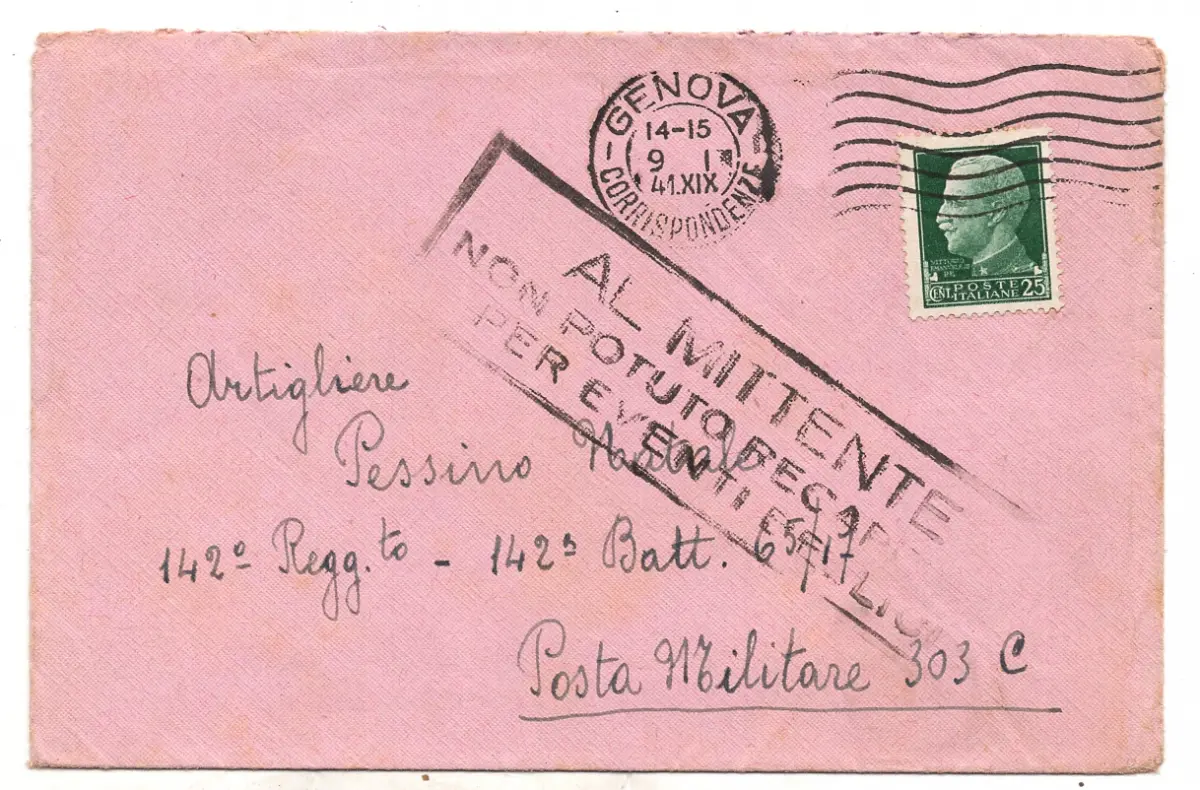 GENOVA
14-15
9 I
41.XIX
CORRISPONDENZE
VITTORIO
EMANUELE III
RE
CENT. POSTE 25
ITALIANE
AL MITTENTE
NON POTUTO RECAPI
PER EVENTI BELLICI
Artigliere
Pessino Natale
142º Regg.to - 142ª Batt. 65/17
Posta Militare 303 C